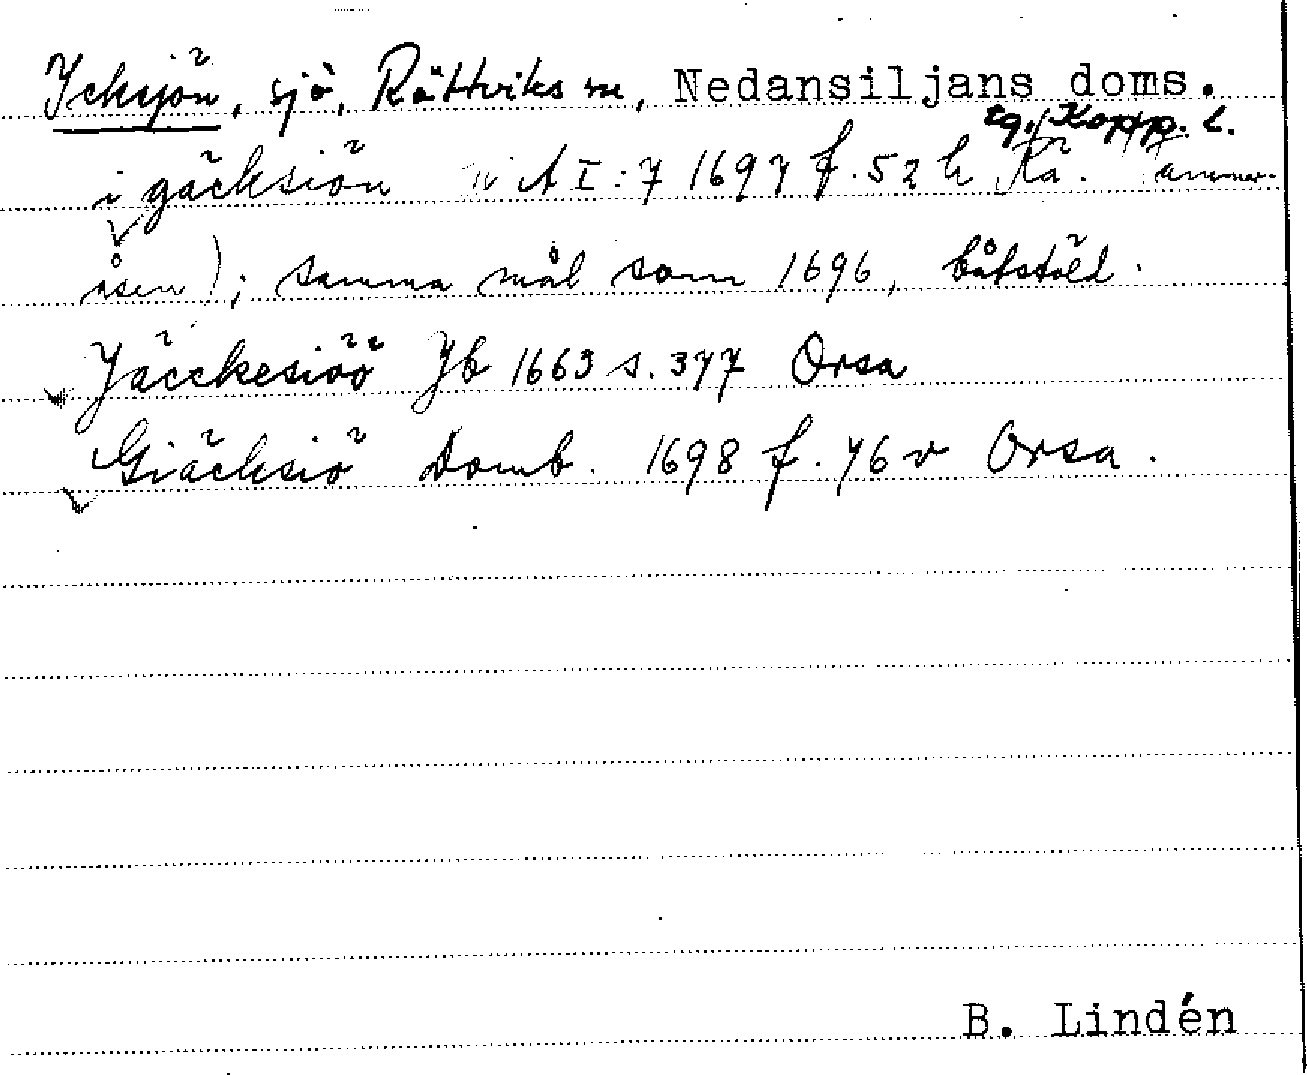 Ycksjön, sjö, Rättviks sn, Nedansiljans doms.
tg, Kopp. l.
i gäcksiön A I:7 1697 f. 52 h
åsen); samma mål som 1696, båtstöld.
Jäcckesiöö Jb 1663 s. 377 Orsa
Giäcksiö Domb. 1698 f. 76 v Orsa.
B. Lindén